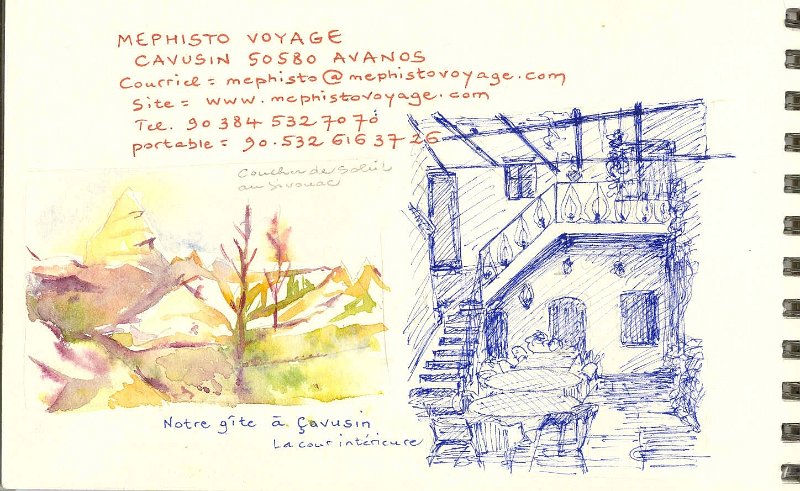 MEPHISTO VOYAGE
CAVUSIN 50580 AVANOS
Courriel = mephisto@mephistovoyage.com
Site = www.mephistovoyage.com
Tel. 90 384 532 70 70
portable = 90.532 616 37 26
Coucher de Soleil
au bivouac
Notre gîte à Çavusin
La cour intérieure